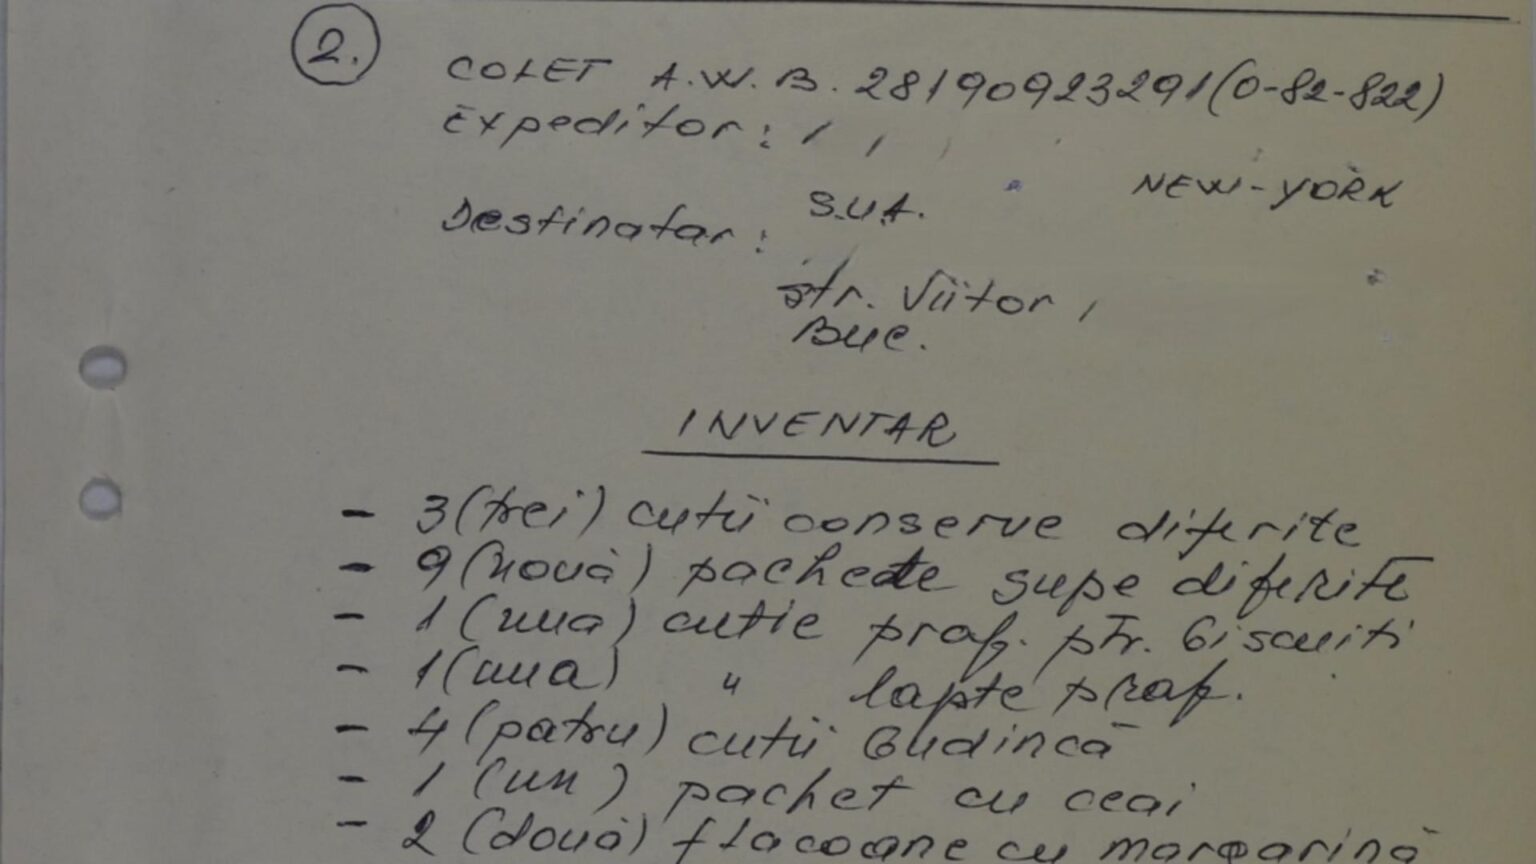 2.
COLET A.W.B. 28190923291(0-82-822)
Expeditor:
NEW-YORK
S.U.A.
Destinatar:
str. Viitor,
Buc.
INVENTAR
- 3 (trei) cutii conserve diferite
- 9 (nouă) pachete supe diferite
- 1 (una) cutie praf. ptr. biscuiti
- 1 (una) " lapte praf.
- 4 (patru) cutii budincă
- 1 (un) pachet cu ceai
- 2 (două) flacoane cu margarină